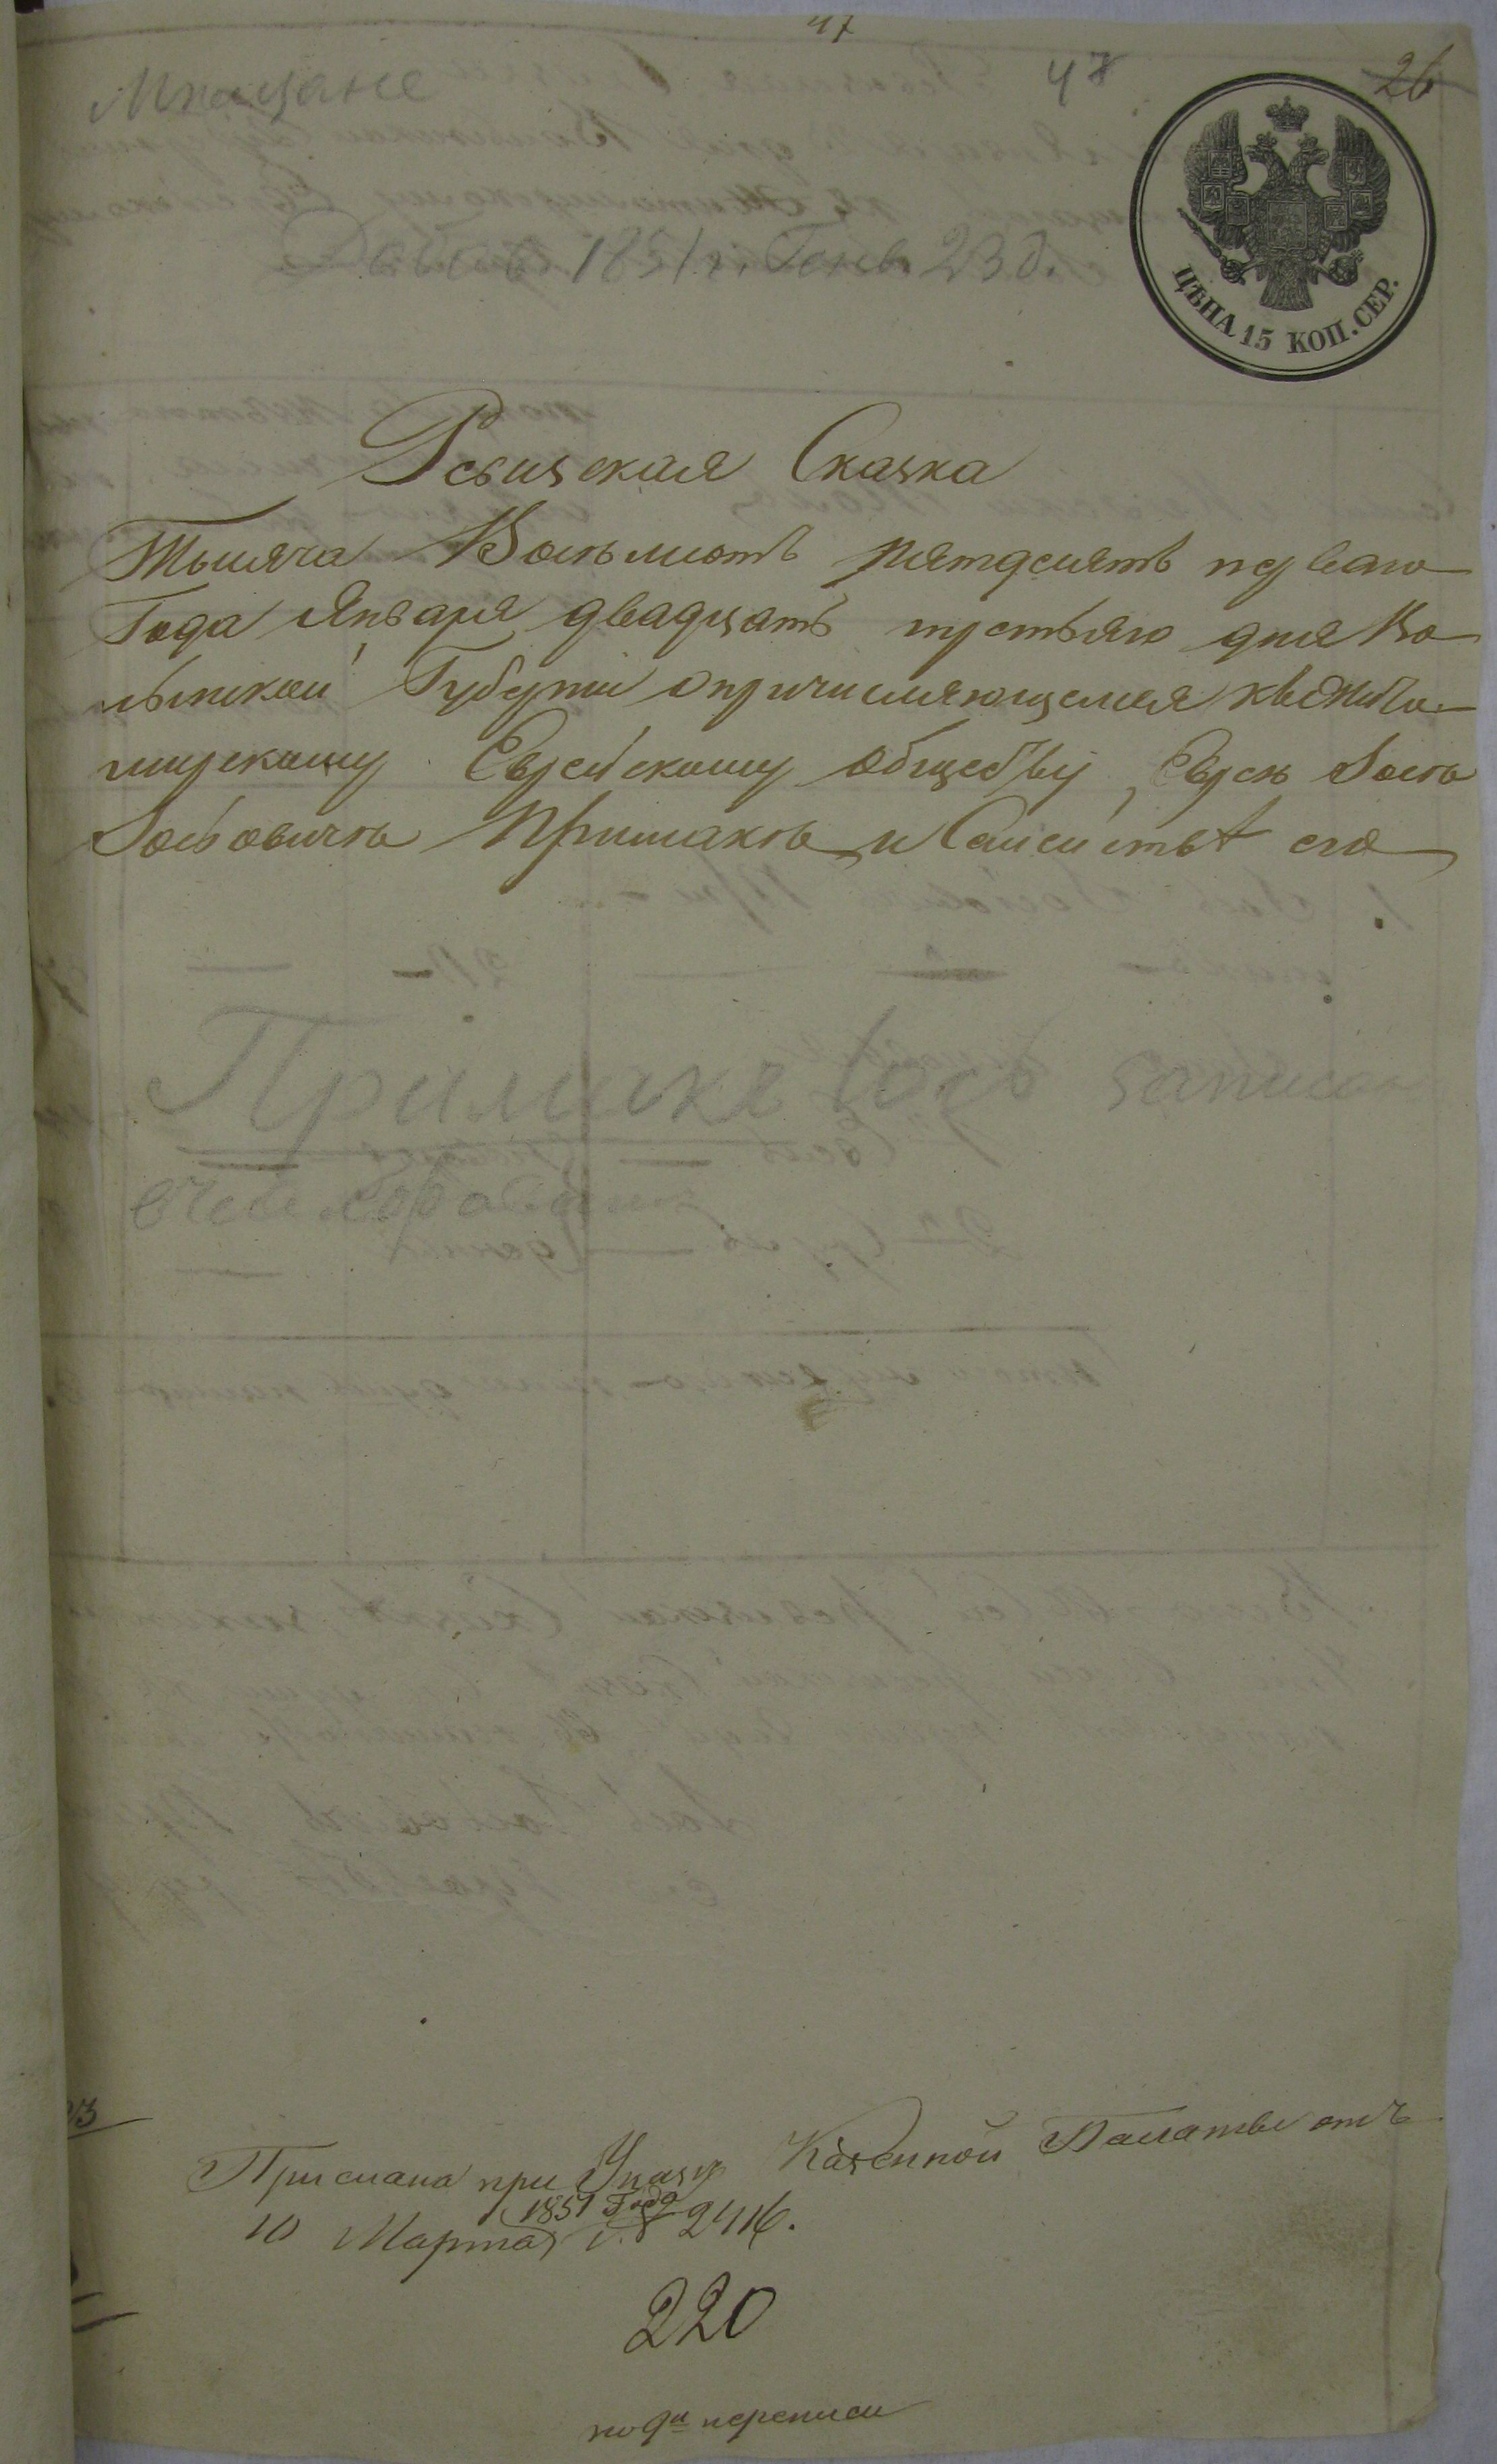 47
47
26
Мѣщане
1851 г. Генв. 23 д.
ЦѢНА 15 КОП. СЕР.
Ревизская Сказка
Тысяча Восемьсотъ пятдесятъ перваго
Года Января двадцать третьяго дня Во-
лынской Губерніи о причисляющемся къ Жито-
мирскому Еврейскому обществу, Евреѣ Іосѣ
Іосьовичѣ Примакѣ и Семействѣ его
Примакъ Іось записан
Прислана при Указѣ Казенной Палаты отъ
10 Марта 1851 Года № 2416.
220
по 9й переписи